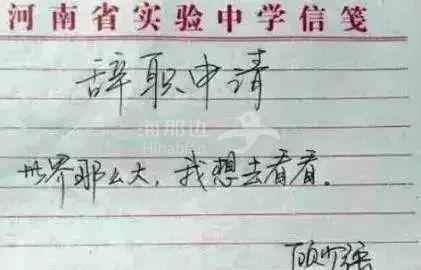 河南省实验中学信笺
辞职申请
海那边
Hinabian
世界那么大，我想去看看。
顾少强